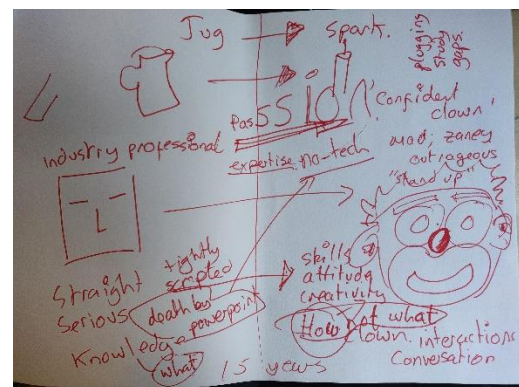 Jug
spark.
plugging
study
gaps.
Passion
'Confident
clown'
industry professional
expertise no-tech
mad, zaney
outrageous
"stand up"
Straight
Serious
tightly
scripted
death by
powerpoint
Knowledge
what
skills
attitude
creativity
How not what
Clown interactions
Conversation
15 years